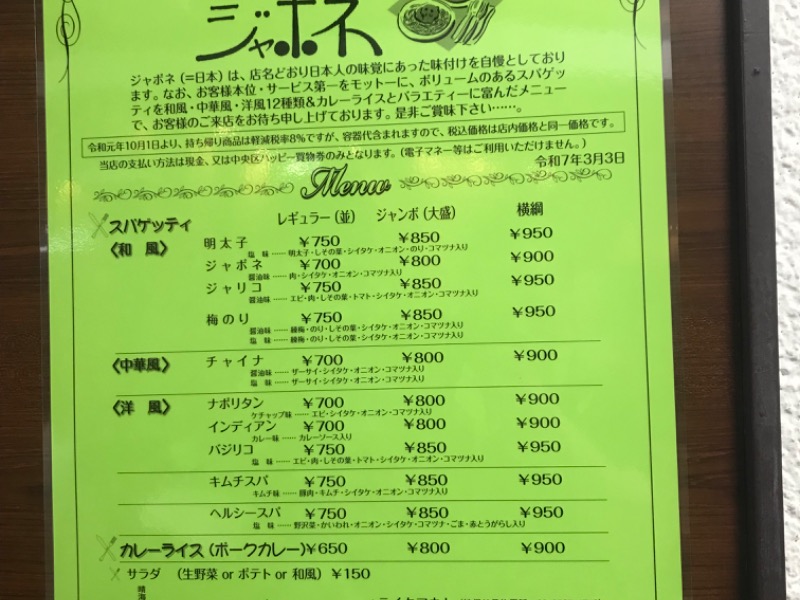 ジャポネ
ジャポネ (=日本) は、店名どおり日本人の味覚にあった味付けを自慢としており
ます。なお、お客様本位・サービス第一をモットーに、ボリュームのあるスパゲッ
ティを和風・中華風・洋風12種類&カレーライスとバラエティーに富んだメニュー
で、お客様のご来店をお待ち申し上げております。是非ご賞味下さい……。
令和元年10月1日より、持ち帰り商品は軽減税率8%ですが、容器代含まれますので、税込価格は店内価格と同一価格です。
当店の支払い方法は現金、又は中央区ハッピー買物券のみとなります。(電子マネー等はご利用いただけません。)
令和7年3月3日
Menu
スパゲッティ レギュラー (並) ジャンボ (大盛) 横綱
〈和 風〉 明太子 ¥750 ¥850 ¥950
塩 味 …… 明太子・しその葉・シイタケ・オニオン・のり・コマツナ入り
ジャポネ ¥700 ¥800 ¥900
醤油味 …… 肉・シイタケ・オニオン・コマツナ入り
ジャリコ ¥750 ¥850 ¥950
醤油味 …… エビ・肉・しその葉・トマト・シイタケ・オニオン・コマツナ入り
梅のり ¥750 ¥850 ¥950
醤油味 …… 練梅・のり・しその葉・シイタケ・オニオン・コマツナ入り
塩 味 …… 練梅・のり・しその葉・シイタケ・オニオン・コマツナ入り
〈中華風〉 チャイナ ¥700 ¥800 ¥900
醤油味 …… ザーサイ・シイタケ・オニオン・コマツナ入り
塩 味 …… ザーサイ・シイタケ・オニオン・コマツナ入り
〈洋 風〉 ナポリタン ¥700 ¥800 ¥900
ケチャップ味 …… エビ・シイタケ・オニオン・コマツナ入り
インディアン ¥700 ¥800 ¥900
カレー味 …… カレーソース入り
バジリコ ¥750 ¥850 ¥950
塩 味 …… エビ・肉・しその葉・トマト・シイタケ・オニオン・コマツナ入り
キムチスパ ¥750 ¥850 ¥950
キムチ味 …… 豚肉・キムチ・シイタケ・オニオン・コマツナ入り
ヘルシースパ ¥750 ¥850 ¥950
塩 味 …… 野沢菜・かいわれ・オニオン・シイタケ・コマツナ・ごま・赤とうがらし入り
カレーライス (ポークカレー) ¥650 ¥800 ¥900
サラダ (生野菜 or ポテト or 和風) ¥150
晴海